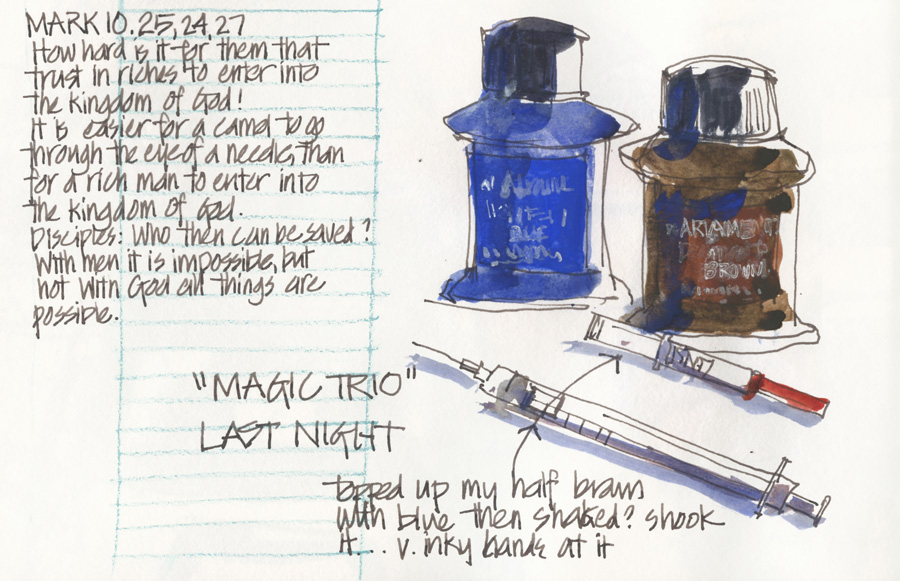 MARK 10. 25, 24, 27
How hard is it for them that
trust in riches to enter into
the kingdom of God!
It is easier for a camel to go
through the eye of a needle, than
for a rich man to enter into
the kingdom of God.
Disciples: Who then can be saved?
With men it is impossible, but
not with God all things are
possible.
"MAGIC TRIO"
LAST NIGHT
topped up my half brown
with blue then shaked? shook
it... v. inky hands at it
BLUE
BROWN